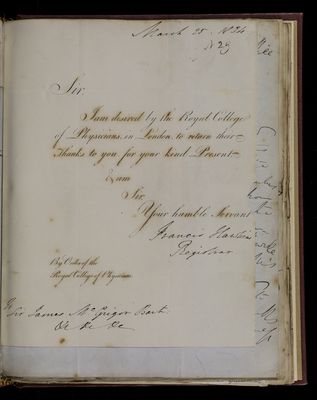 March 25. 1834
No 29
Sir
I am desired by the Royal College
of Physicians, in London, to return their
Thanks to you for your kind Present
& am
Sir,
Your humble Servant
Francis Hawkins
Registrar
By Order of the
Royal College of Physicians
To
Sir James McGrigor Bart.
&c &c &c